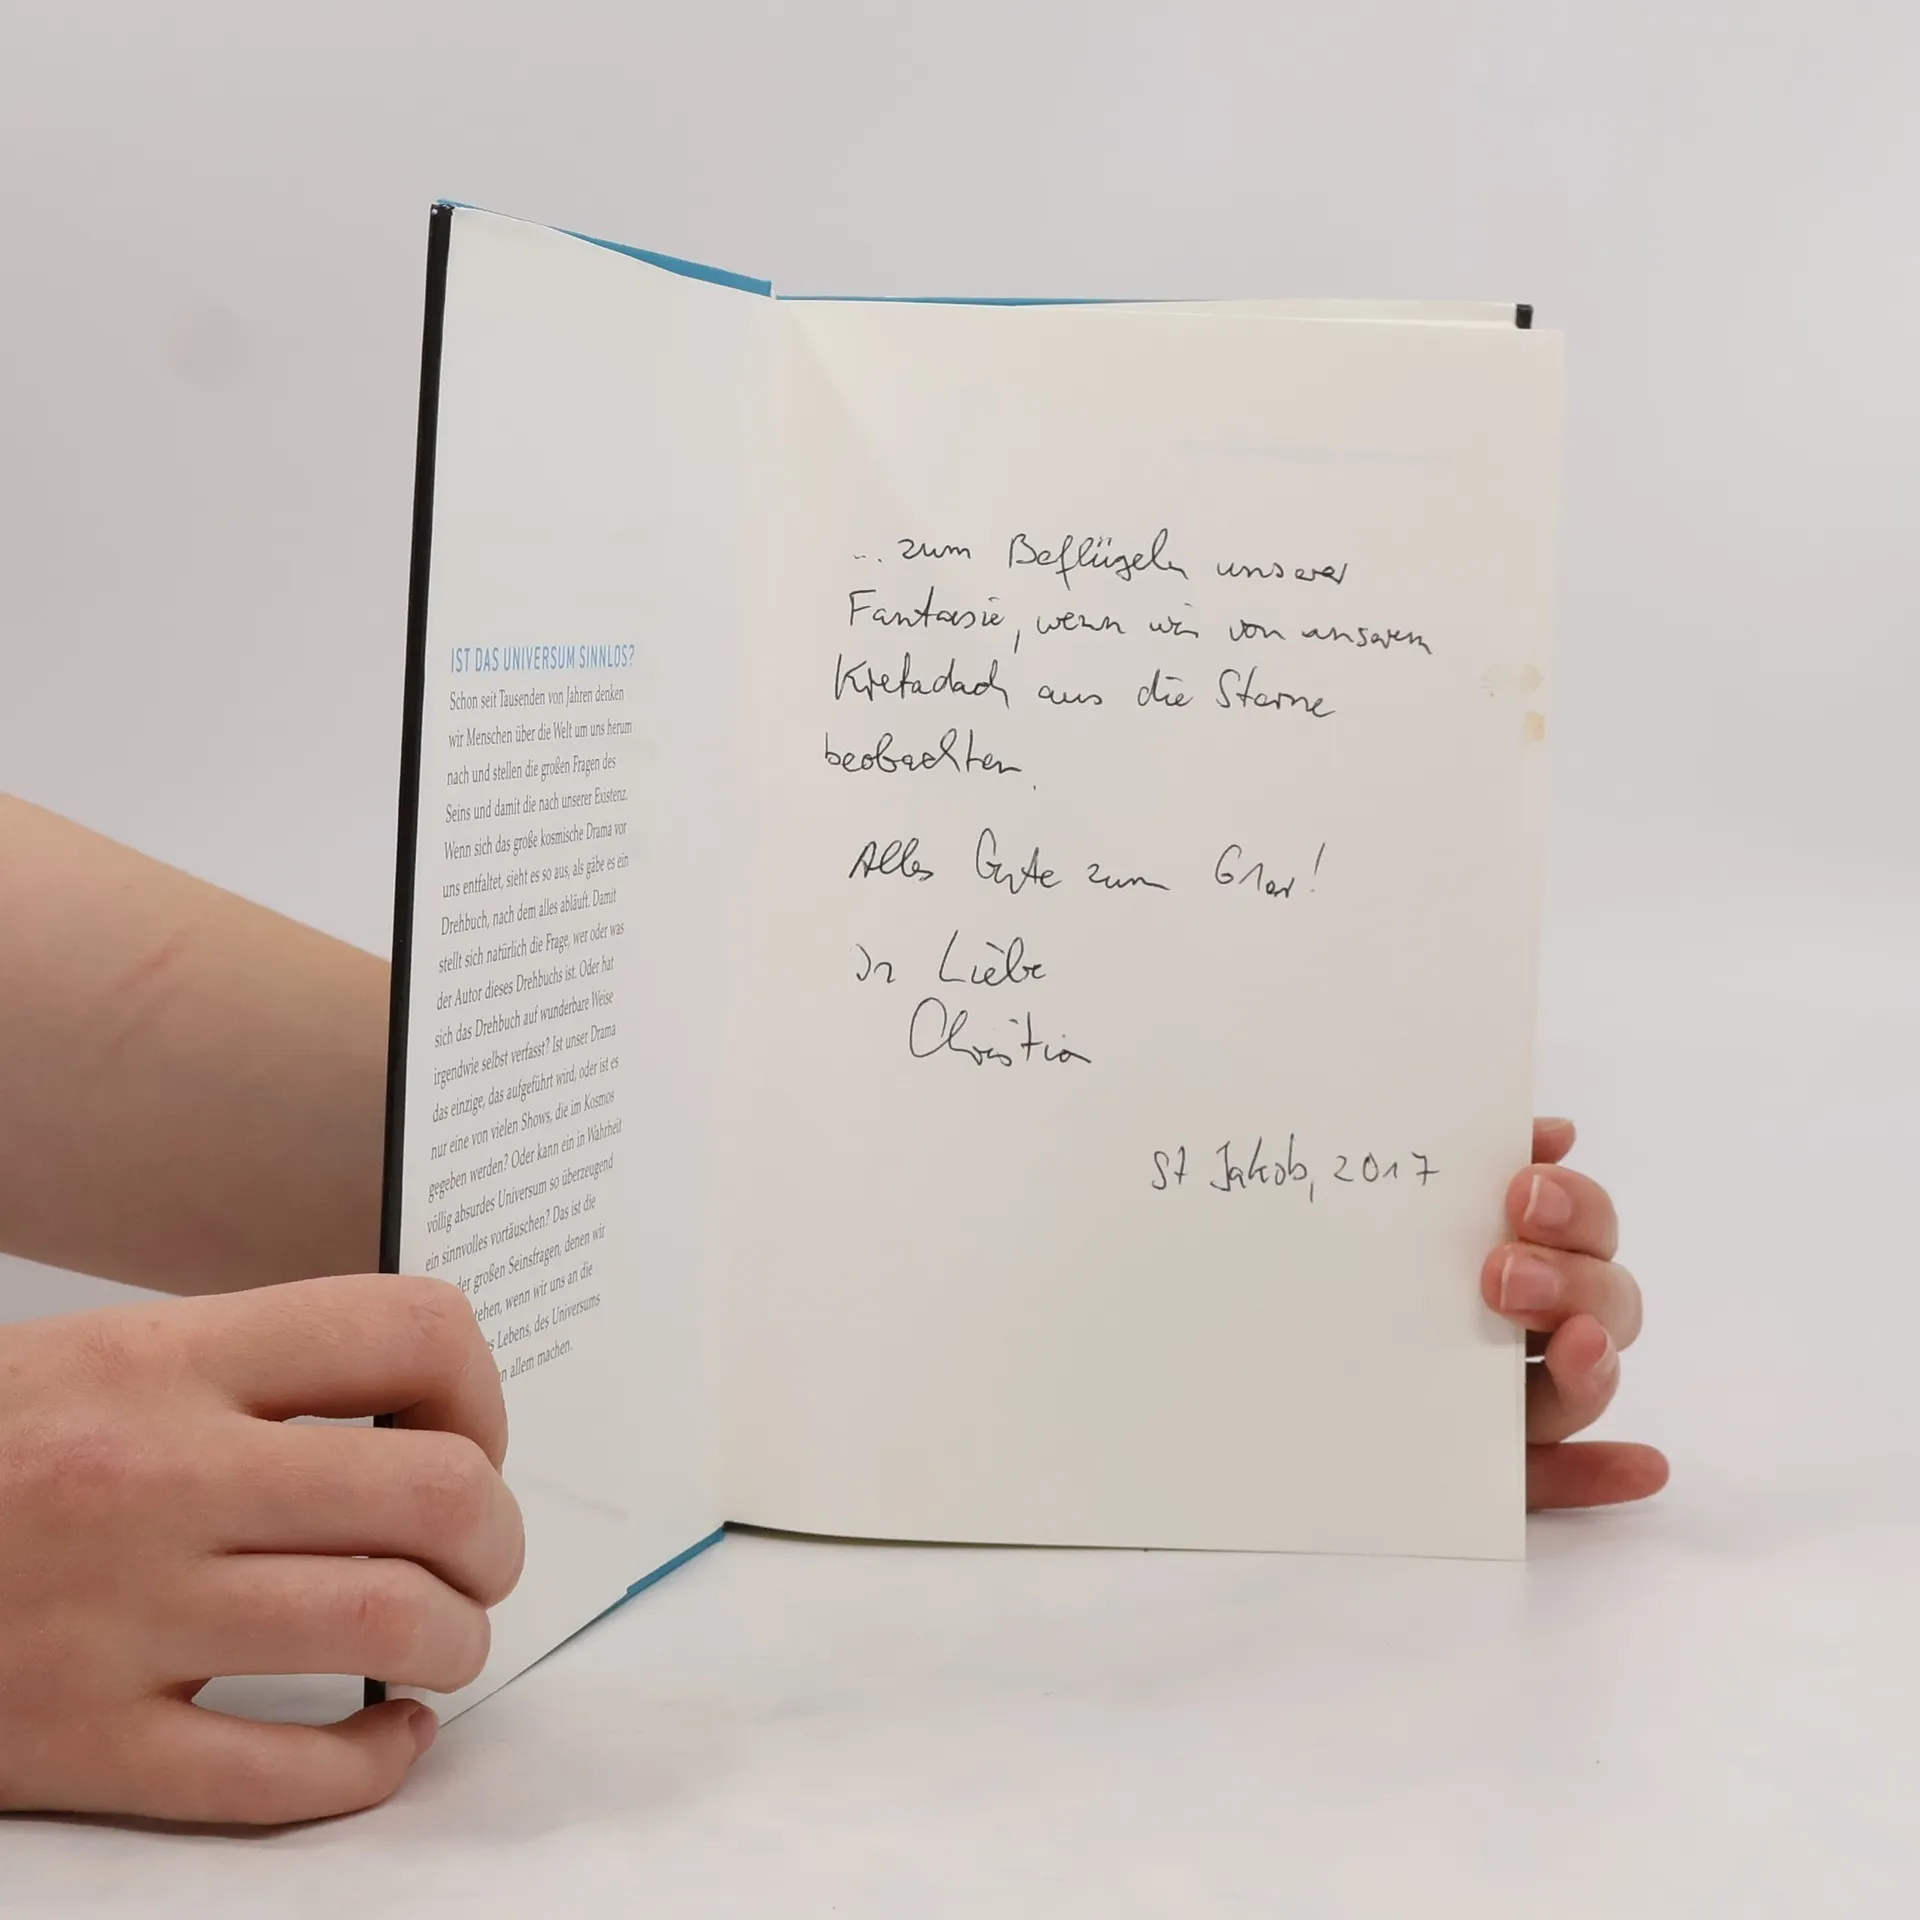 IST DAS UNIVERSUM SINNLOS?
Schon seit Tausenden von Jahren denken
wir Menschen über die Welt um uns herum
nach und stellen die großen Fragen des
Seins und damit die nach unserer Existenz.
Wenn sich das große kosmische Drama vor
uns entfaltet, sieht es so aus, als gäbe es ein
Drehbuch, nach dem alles abläuft. Damit
stellt sich natürlich die Frage, wer oder was
der Autor dieses Drehbuchs ist. Oder hat
sich das Drehbuch auf wunderbare Weise
irgendwie selbst verfasst? Ist unser Drama
das einzige, das aufgeführt wird, oder ist es
nur eine von vielen Shows, die im Kosmos
gegeben werden? Oder kann ein in Wahrheit
völlig absurdes Universum so überzeugend
ein sinnvolles vortäuschen? Das ist die
der großen Seinsfragen, denen wir
tehen, wenn wir uns an die
s Lebens, des Universums
n allem machen.
... zum Beflügeln unserer
Fantasie, wenn wir von unserem
Kretadach aus die Sterne
beobachten.
Alles Gute zum 61er!
In Liebe
Christian
St Jakob, 2017